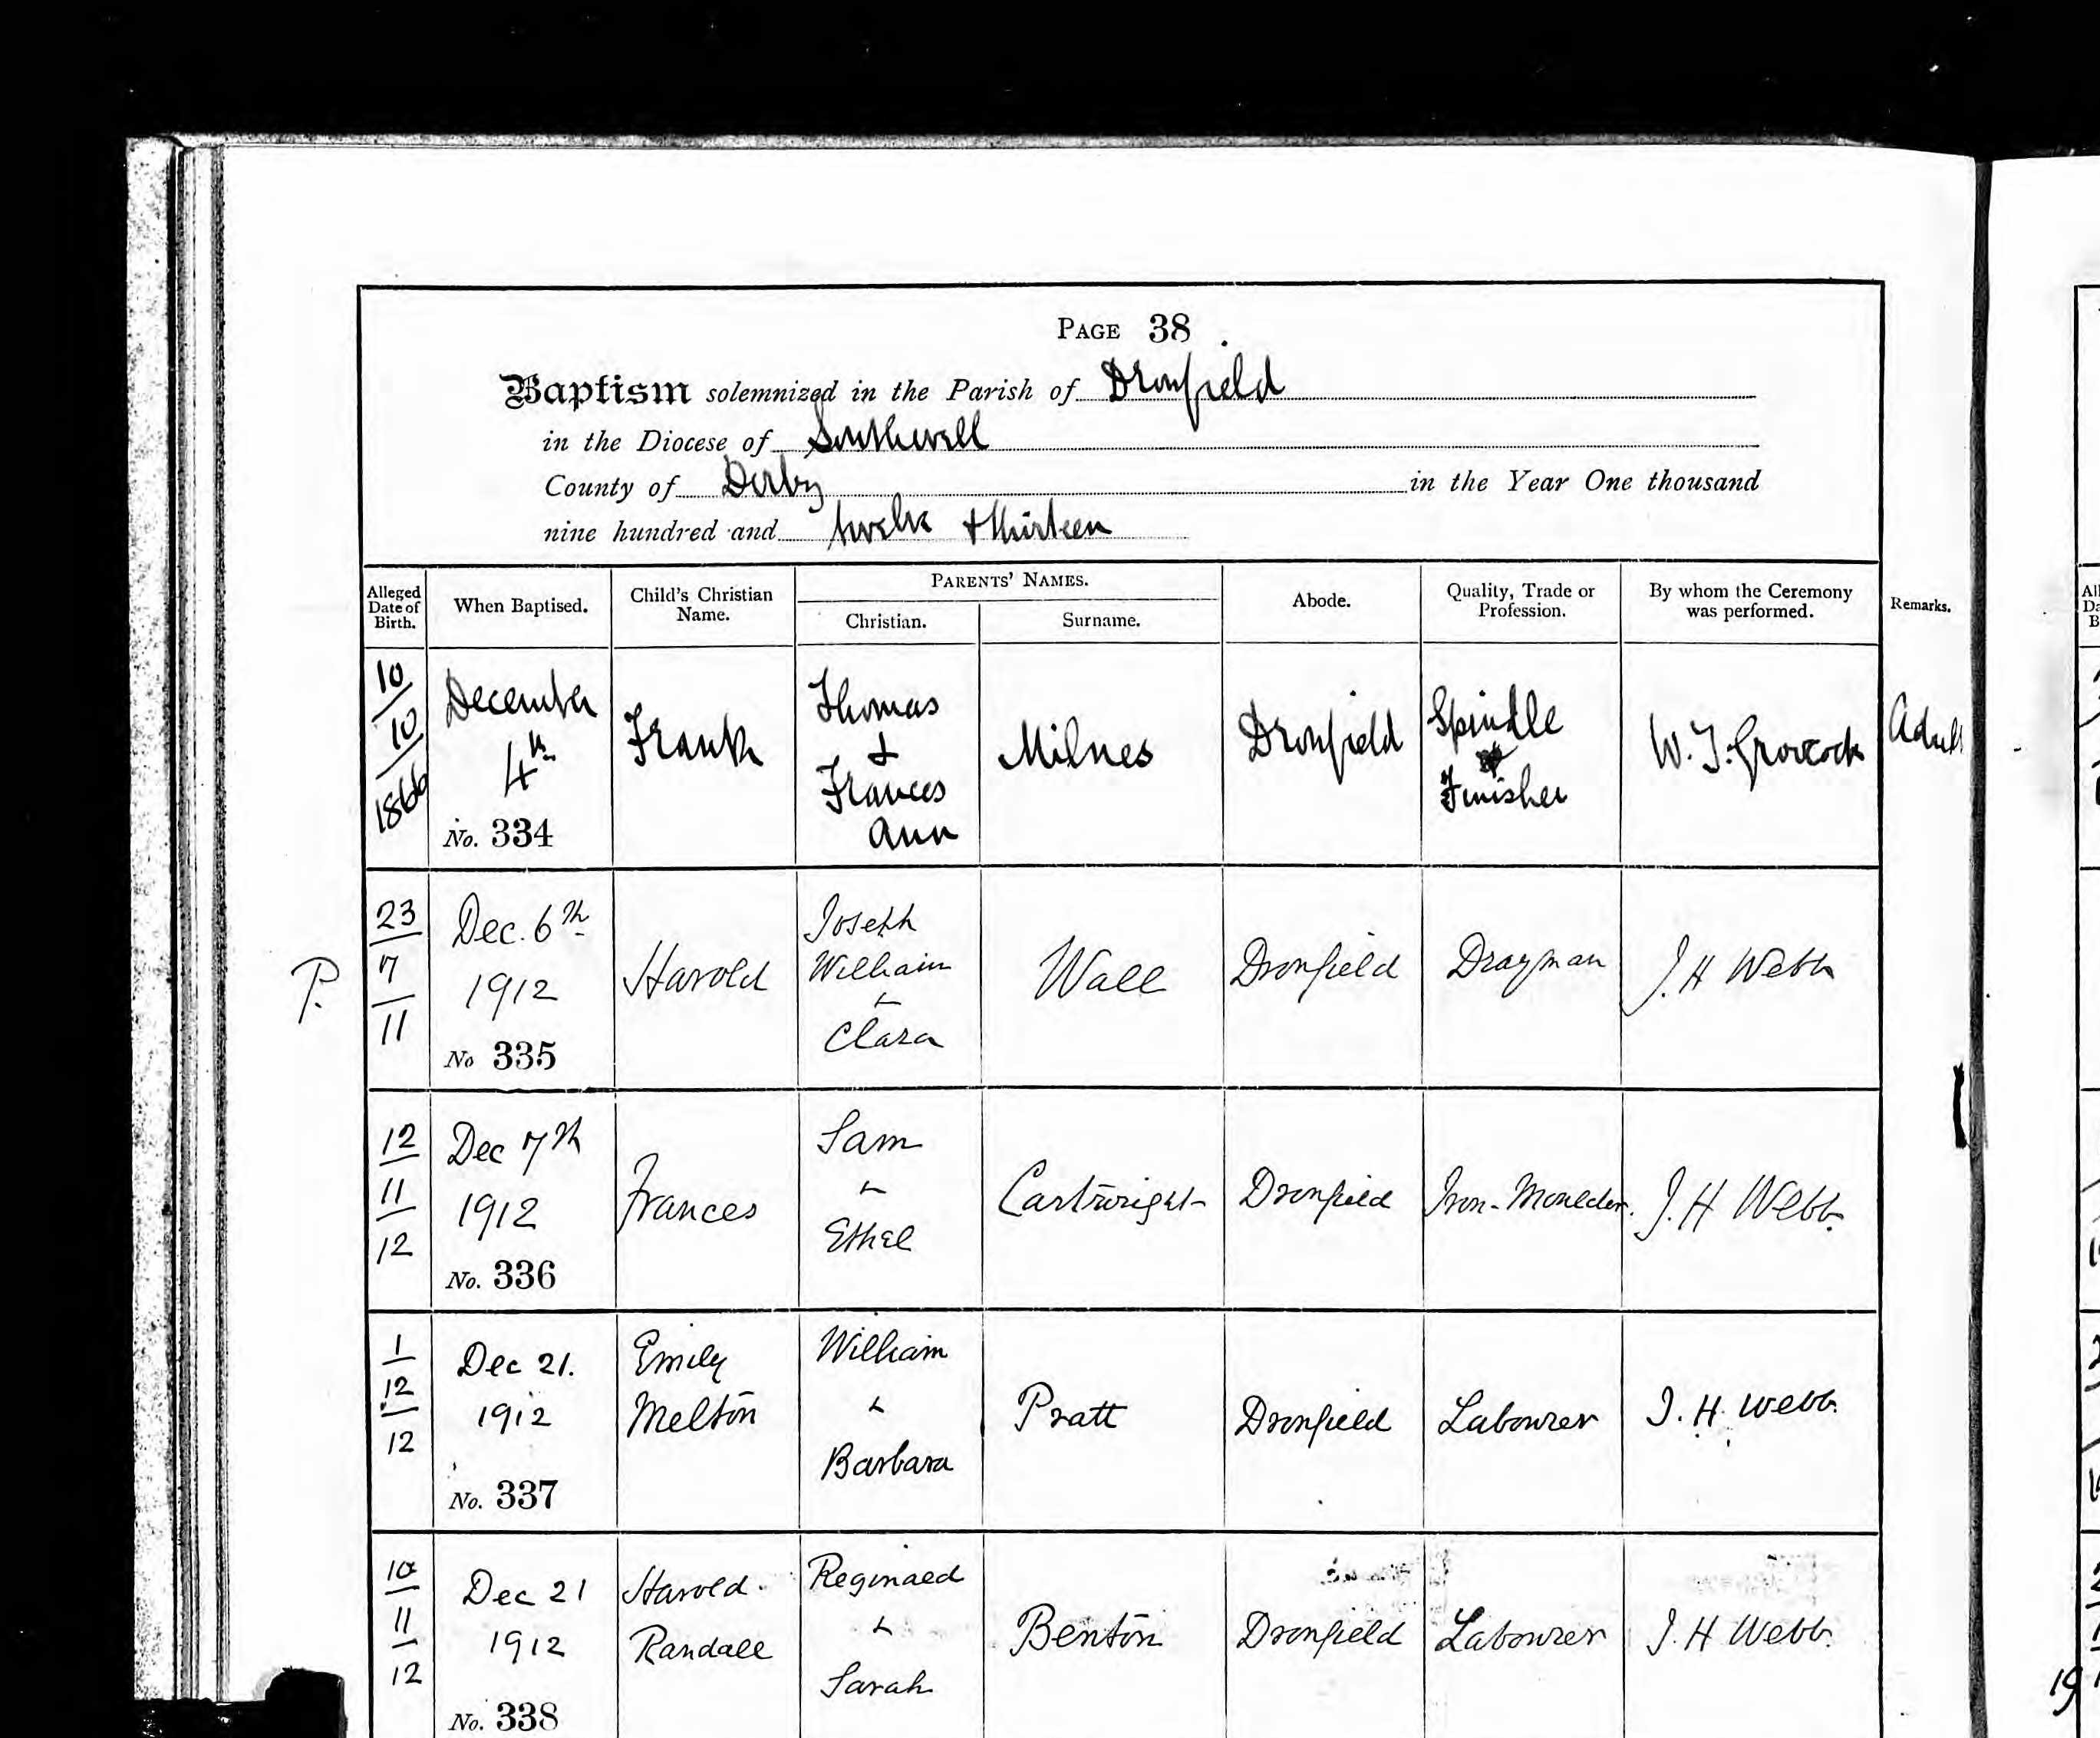 PAGE 38
Baptism solemnized in the Parish of Dronfield
in the Diocese of Southwell
County of Derby in the Year One thousand
nine hundred and twelve & thirteen
Alleged Date of Birth.
When Baptised.
Child's Christian Name.
PARENTS' NAMES.
Christian.
Surname.
Abode.
Quality, Trade or Profession.
By whom the Ceremony was performed.
Remarks.
10/10/1866
December 4th
No. 334
Frank
Thomas
&
Frances
Ann
Milnes
Dronfield
Spindle
Finisher
W. T. Grocock
Adult
P.
23/7/11
Dec. 6th
1912
No 335
Harold
Joseph
William
&
Clara
Wall
Dronfield
Drayman
J. H Webb
12/11/12
Dec 7th
1912
No. 336
Frances
Sam
&
Ethel
Cartwright
Dronfield
Iron-Moulder.
J. H Webb.
1/12/12
Dec 21.
1912
No. 337
Emily
Melton
William
&
Barbara
Pratt
Dronfield
Labourer
J. H. Webb.
10/11/12
Dec 21
1912
No. 338
Harold
Randall
Reginald
&
Sarah
Benton
Dronfield
Labourer
J. H Webb.